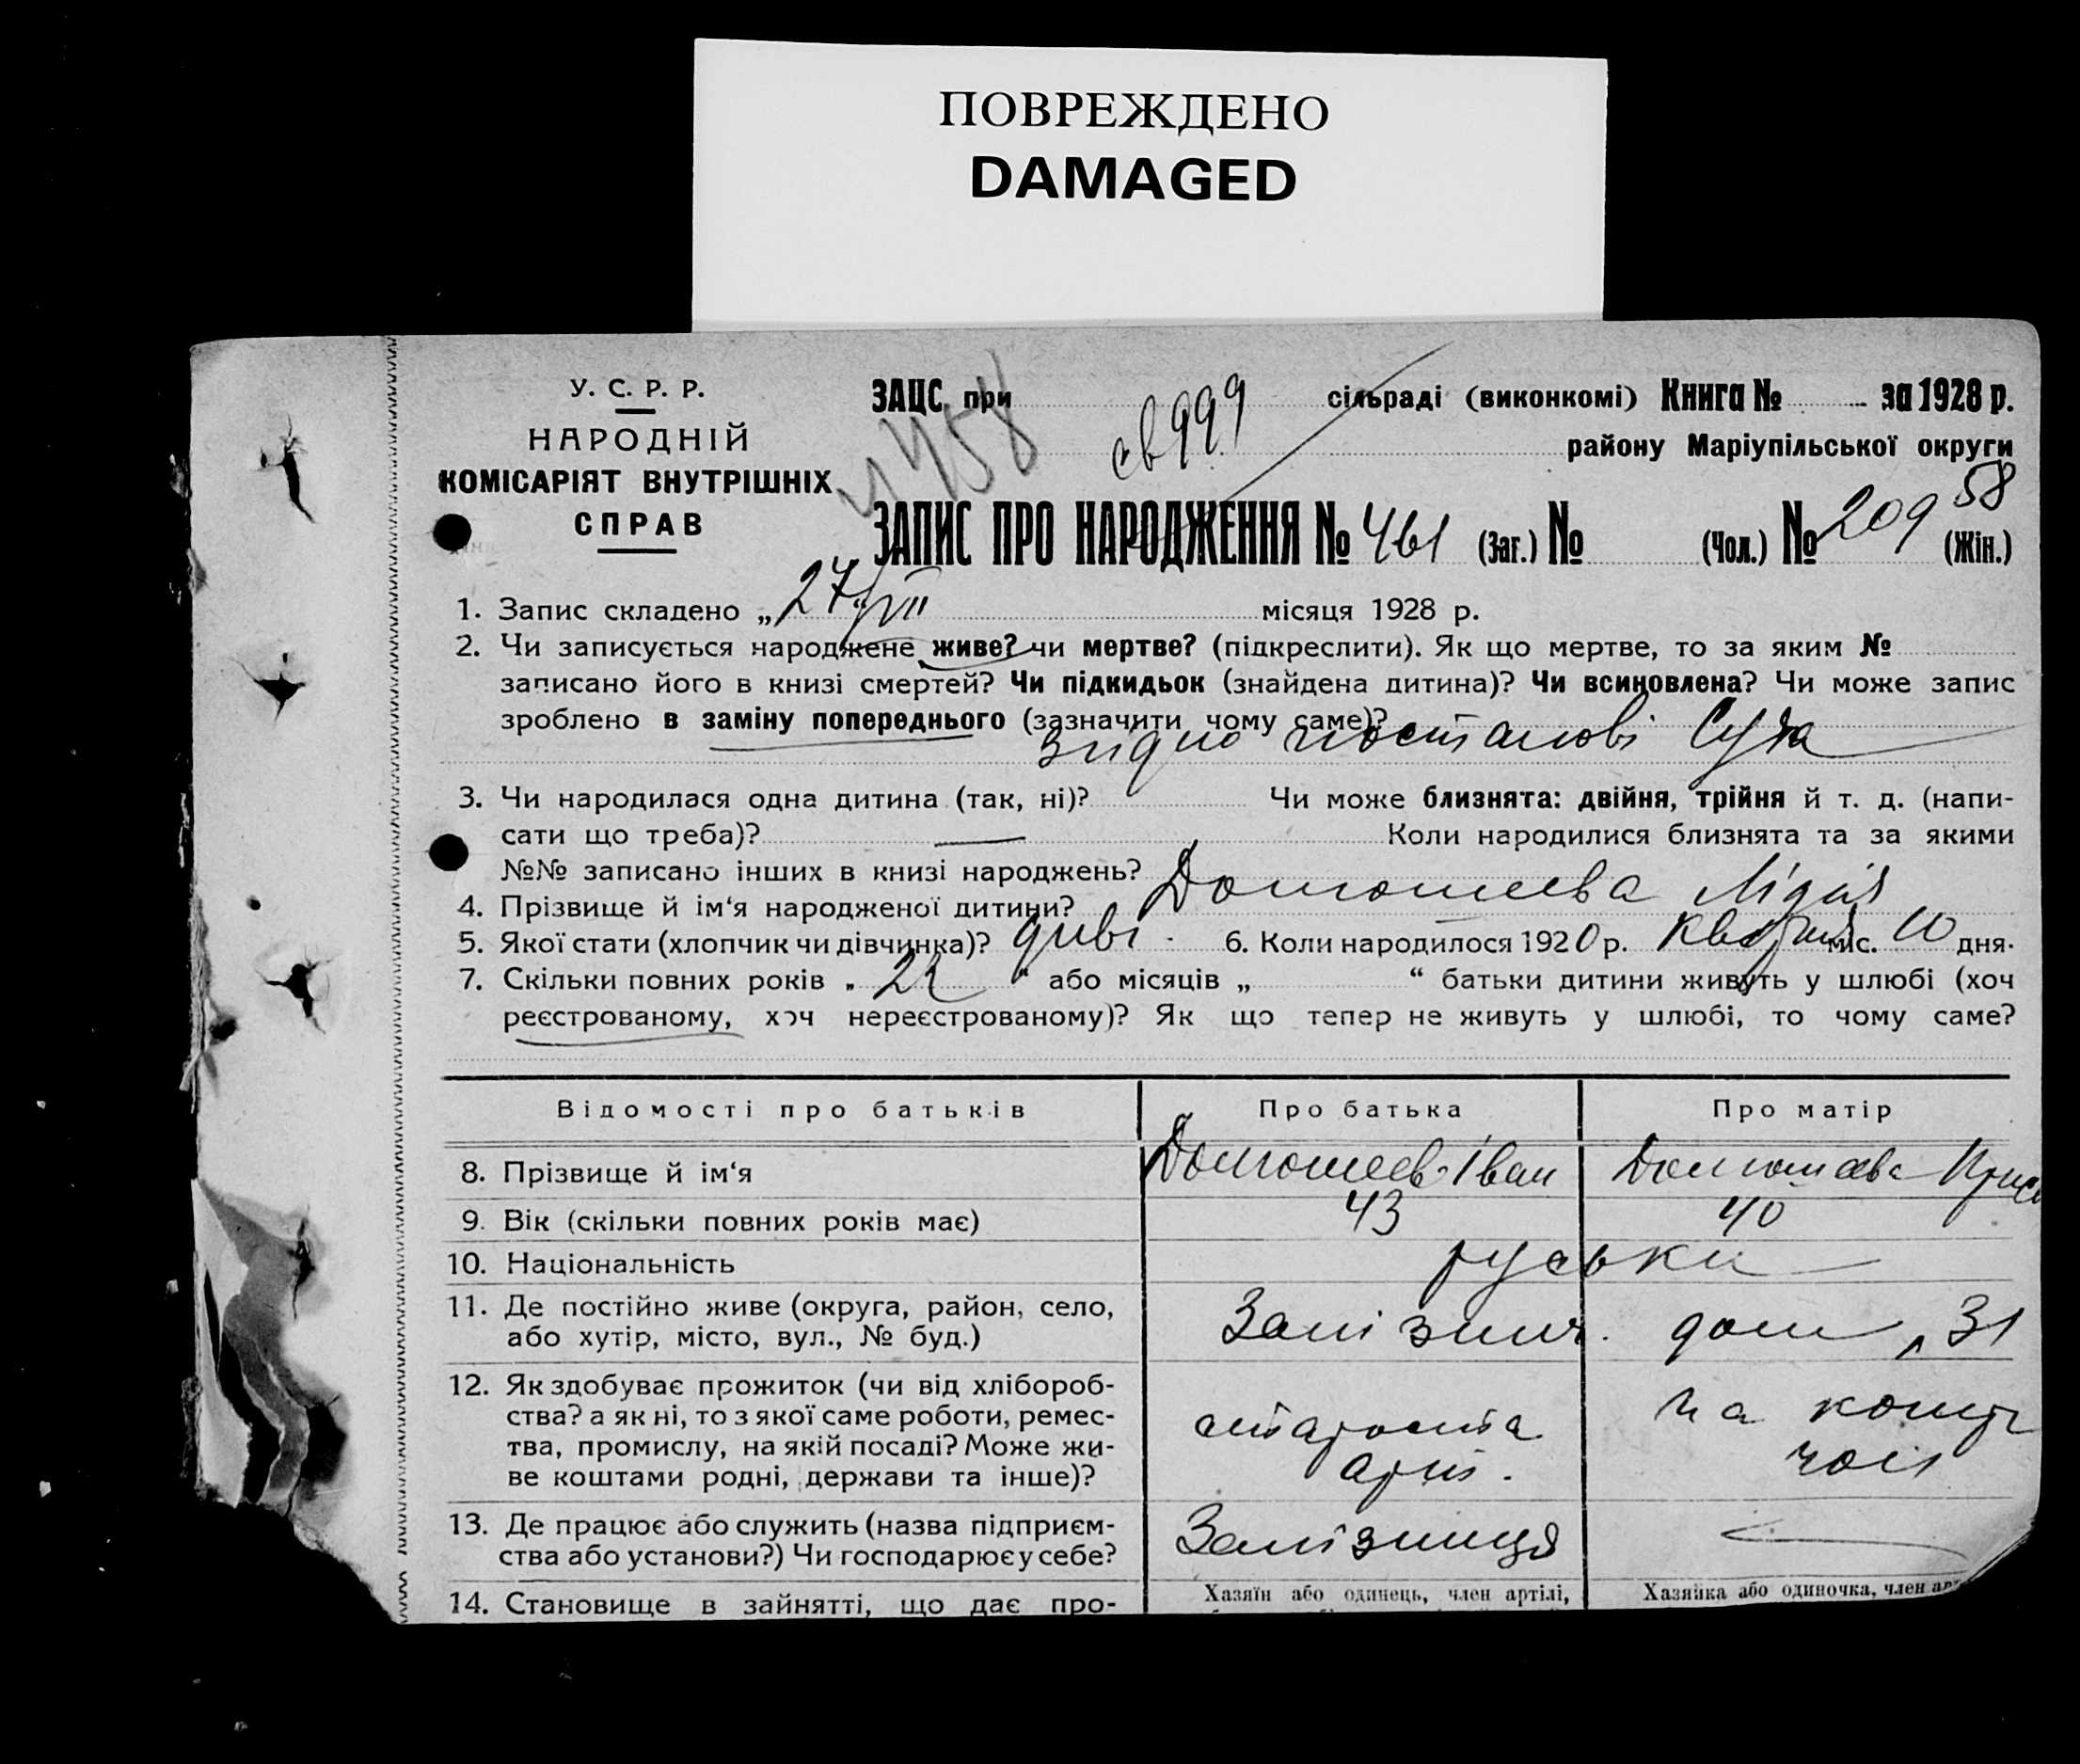 ПОВРЕЖДЕНО
DAMAGED
У. С. Р. Р.
НАРОДНІЙ
КОМІСАРІЯТ ВНУТРІШНІХ
СПРАВ
ЗАЦС при сільраді (виконкомі) Книга № за 1928 р.
458 св 999
району Маріупільської округи
ЗАПИС ПРО НАРОДЖЕННЯ № 461 (Заг.) № (Чол.) № 209 58 (Жін.)
1. Запис складено „27“ VII місяця 1928 р.
2. Чи записується народжене живе? чи мертве? (підкреслити). Як що мертве, то за яким №
записано його в книзі смертей? Чи підкидьок (знайдена дитина)? Чи всиновлена? Чи може запис
зроблено в заміну попереднього (зазначити чому саме)?
згідно постанові Суда
3. Чи народилася одна дитина (так, ні)? Чи може близнята: двійня, трійня й т. д. (напи-
сати що треба)? — Коли народилися близнята та за якими
№№ записано інших в книзі народжень?
4. Прізвище й ім‘я народженої дитини? Лідія
5. Якої стати (хлопчик чи дівчинка)? дивч. 6. Коли народилося 1920 р. квітня міс. 10 дня.
7. Скільки повних років „22“ або місяців „ “ батьки дитини живуть у шлюбі (хоч
реєстрованому, хоч нереєстрованому)? Як що тепер не живуть у шлюбі, то чому саме?
Відомості про батьків Про батька Про матір
8. Прізвище й ім‘я Іван
9. Вік (скільки повних років має) 43 40
10. Національність руськи
11. Де постійно живе (округа, район, село,
або хутір, місто, вул., № буд.) Залізнич. дом 31
12. Як здобуває прожиток (чи від хлібороб-
ства? а як ні, то з якої саме роботи, ремес-
тва, промислу, на якій посаді? Може жи-
ве коштами родні, держави та інше)? староста арт. на кошт
13. Де працює або служить (назва підприєм-
ства або установи?) Чи господарює у себе? Залізниця —
14. Становище в зайнятті, що дає про- Хазяїн або одинець, член артілі, Хазяйка або одиночка, член